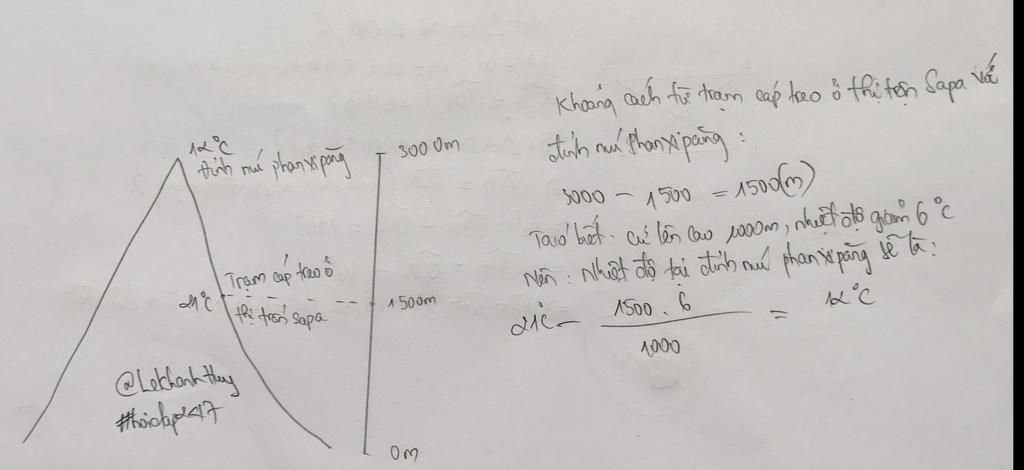 12°C
đỉnh núi phanxipăng
3000m
Trạm cáp treo ở
21°C
thị trấn sapa
1500m
@Lekhanhthuy
#hoidap247
0m
Khoảng cách từ trạm cáp treo ở thị trấn Sapa với
đỉnh núi Phanxipăng :
3000 - 1500 = 1500(m)
Ta có biết : cứ lên cao 1000m, nhiệt độ giảm 6°C
Nên : Nhiệt độ tại đỉnh núi phanxipăng sẽ là :
21°C - 1500 . 6 / 1000 = 12°C